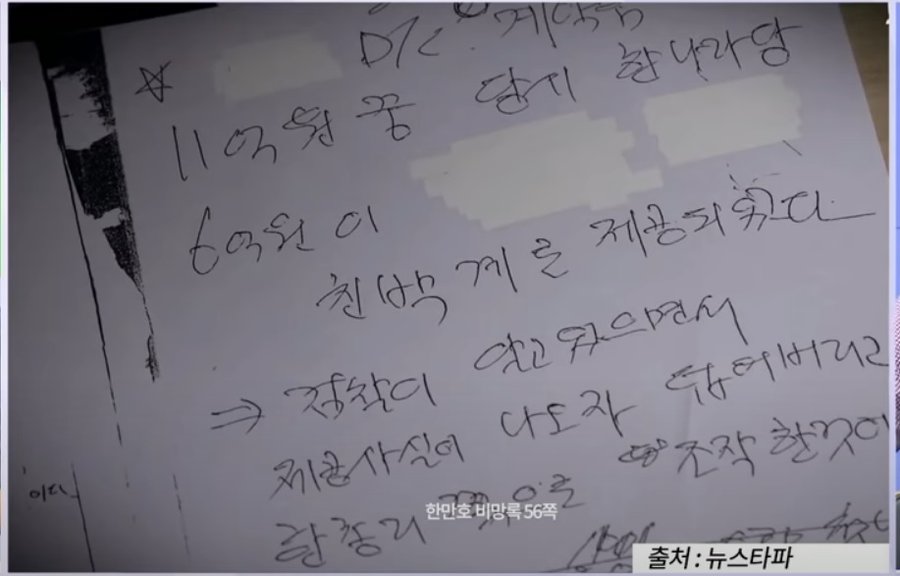 11억원 중 당시 한나라당
6억원이
친박계를 제공되었다
⇒ 검찰이 알고 있으면서
제공사실이 나도자 덮어버리고
조작 한것이
한총리
이다.
한만호 비망록 56쪽
출처 : 뉴스타파